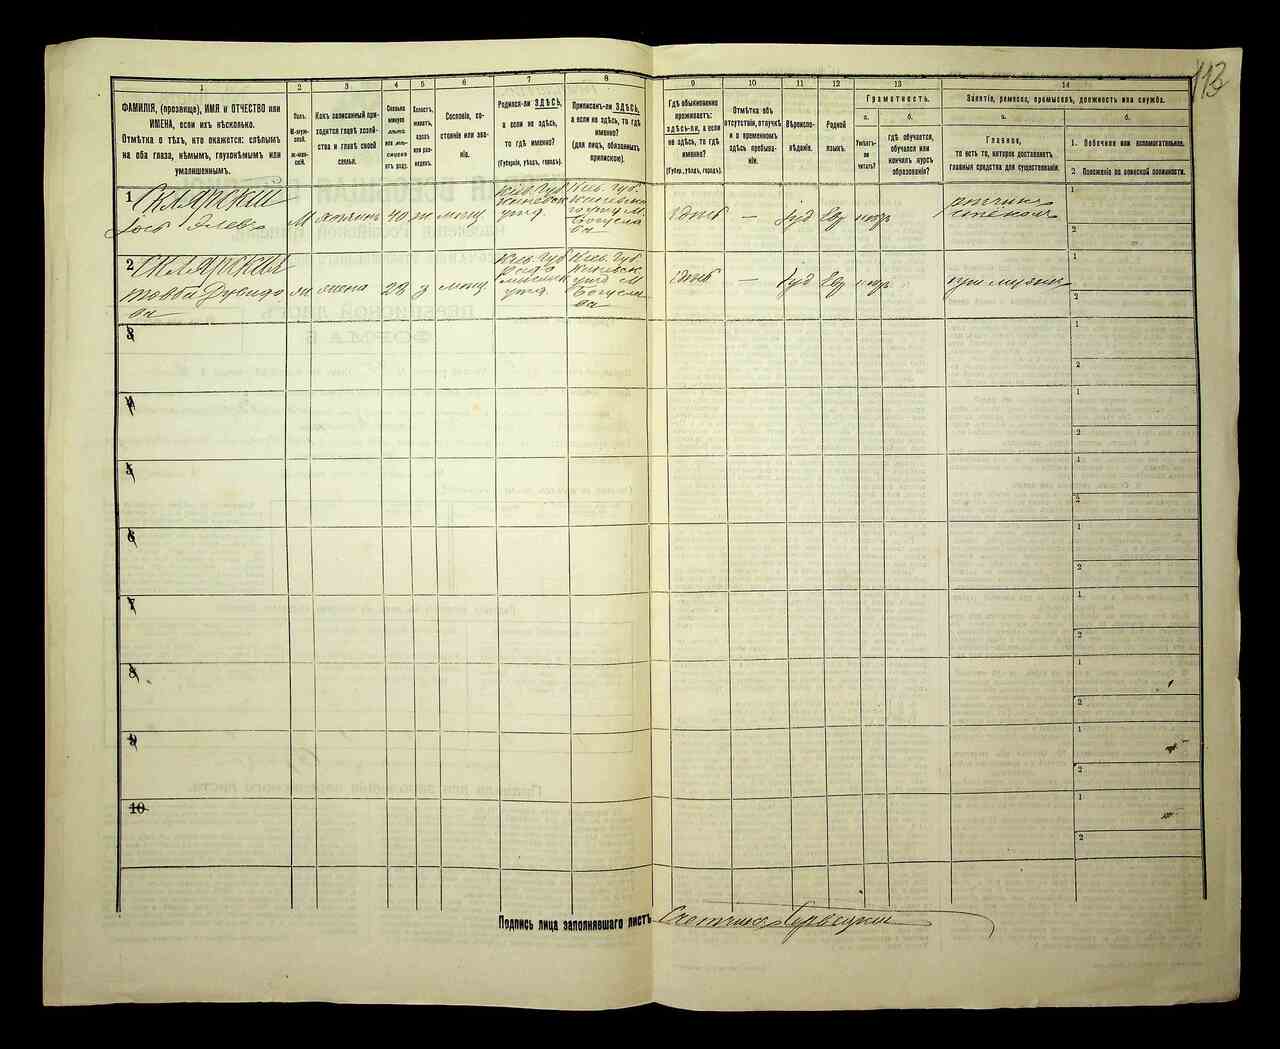 113
1 2 3 4 5 6 7 8 9 10 11 12 13 14
ФАМИЛІЯ, (прозвище), ИМЯ и ОТЧЕСТВО или
ИМЕНА, если ихъ нѣсколько.
Отмѣтка о тѣхъ, кто окажется: слѣпымъ
на оба глаза, нѣмымъ, глухонѣмымъ или
умалишеннымъ.
Полъ.
М-муж-
ской.
ж-жен-
скій.
Какъ записанный при-
ходится главѣ хозяй-
ства и главѣ своей
семьи.
Сколько
минуло
лѣтъ
или мѣ-
сяцевъ
отъ роду.
Холостъ,
женатъ,
вдовъ
или раз-
веденъ.
Сословіе, со-
стояніе или зва-
ніе.
Родился-ли ЗДѢСЬ,
а если не здѣсь,
то гдѣ именно?
(Губернія, уѣздъ, городъ).
Приписанъ-ли ЗДѢСЬ,
а если не здѣсь, то гдѣ
именно?
(для лицъ, обязанныхъ
припискою).
Гдѣ обыкновенно
проживаетъ:
здѣсь-ли, а если
не здѣсь, то гдѣ
именно?
(Губер., уѣздъ, городъ).
Отмѣтка объ
отсутствіи, отлучкѣ
и о временномъ
здѣсь пребыва-
ніи.
Вѣроиспо-
вѣданіе.
Родной
языкъ.
Грамотность.
а.
Умѣетъ-
ли
читать?
б.
гдѣ обучается,
обучался или
кончилъ курсъ
образованія?
Занятіе, ремесло, промыселъ, должность или служба.
а.
Главное,
то есть то, которое доставляетъ
главныя средства для существованія.
б.
1. Побочное или вспомогательное.
2. Положеніе по воинской повинности.
1 Склярский
М 40 ж мѣщ.
Кіев. Губ.
Кіевск
уѣзд.
Кіев. Губ.
уѣзд М.
Богусла
ва
— Іуд Евр
1
2
2 Склярская
Товба Дувидо
ва
ж жена 28 з мѣщ.
Кіев. Губ
уѣзд.
Кіев. Губ
Кіевск.
уѣзд М
Богусла
ва
— Іуд Евр при мужѣ
1
2
3
1
2
4
1
2
5
1
2
6
1
2
7
1
2
8
1
2
9
1
2
10
1
2
Подпись лица заполнявшаго листъ Счетчикъ